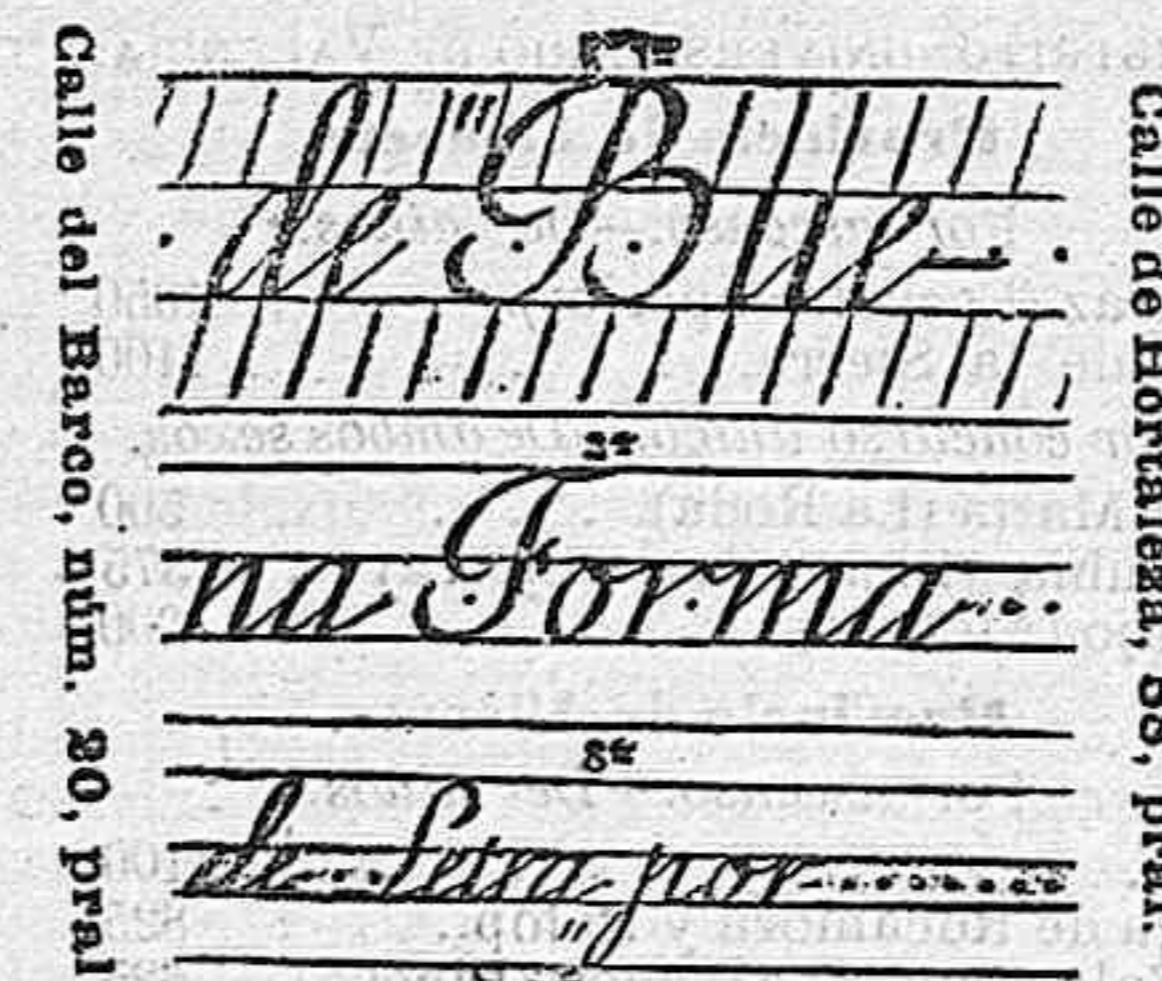 Calle del Barco, núm. 20, pral
de Bue
2ª
na Forma
3ª
de Letra por
Calle de Hortaleza, 88, pral.